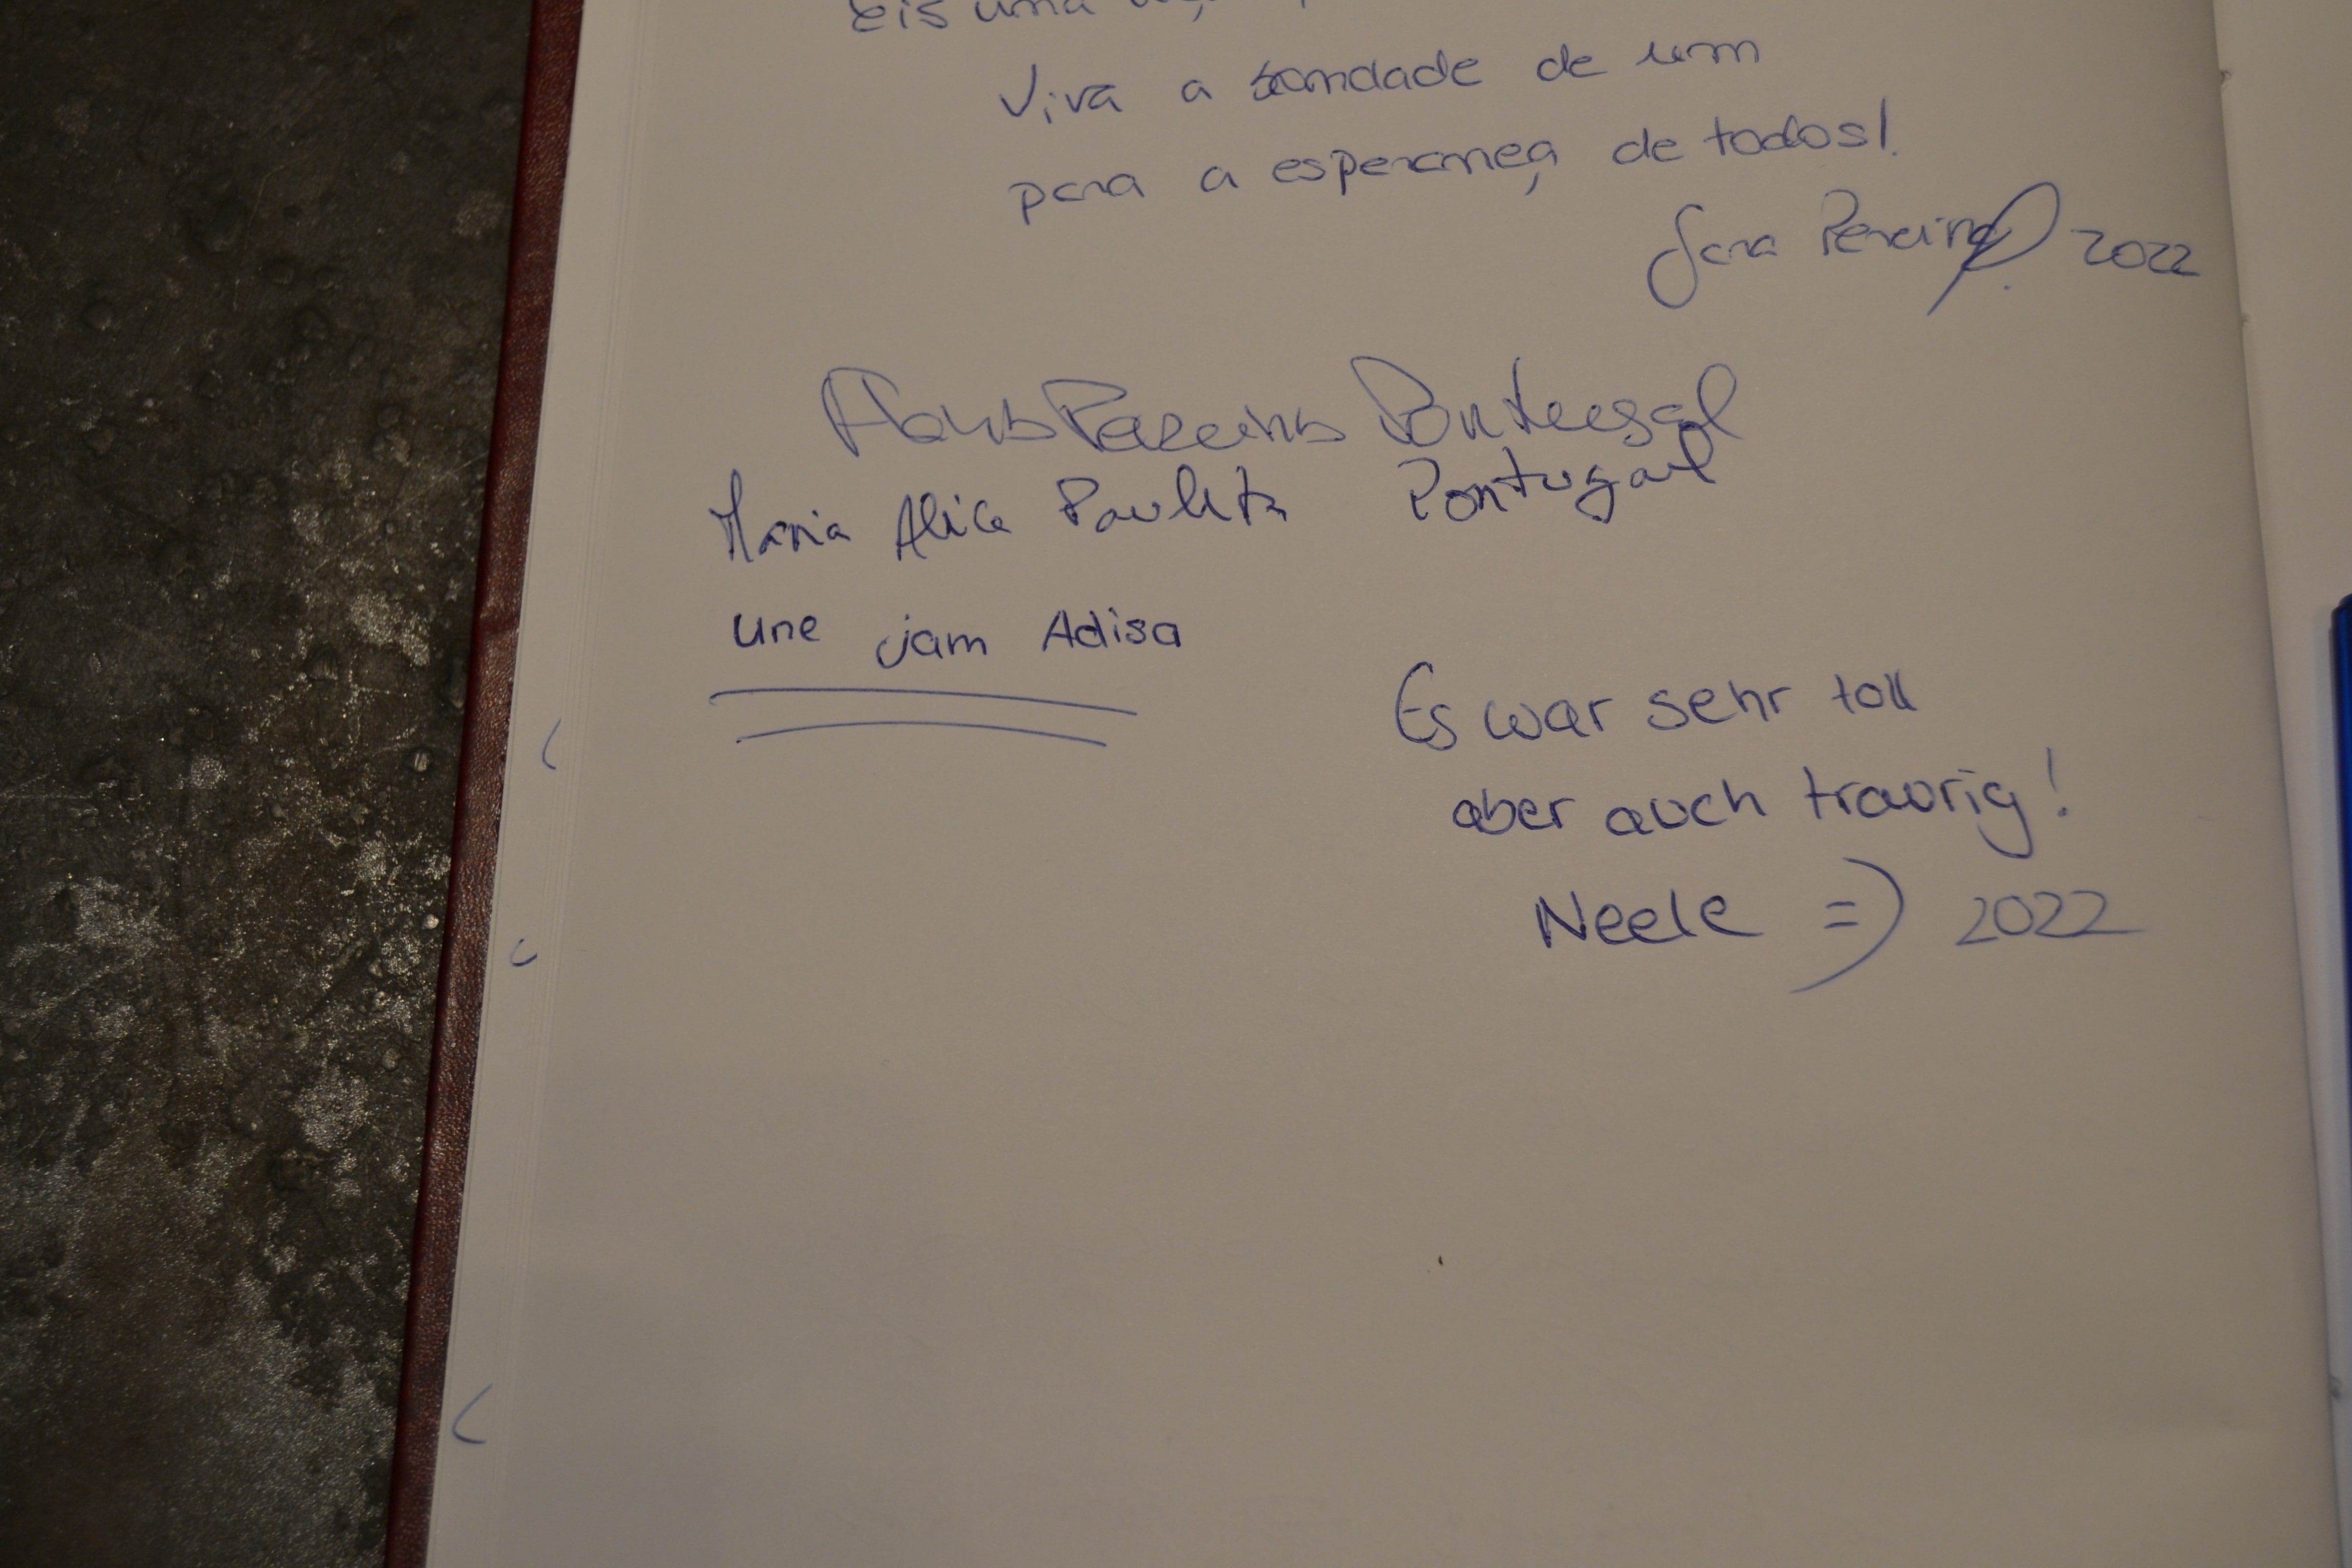 eis uma
Viva a bondade de um
para a esperança de todos!
Sara Pereira 2022
Pereira Portugal
Maria Alice Paulita Portugal
une jam Adisa
Es war sehr toll
aber auch traurig!
Neele =) 2022